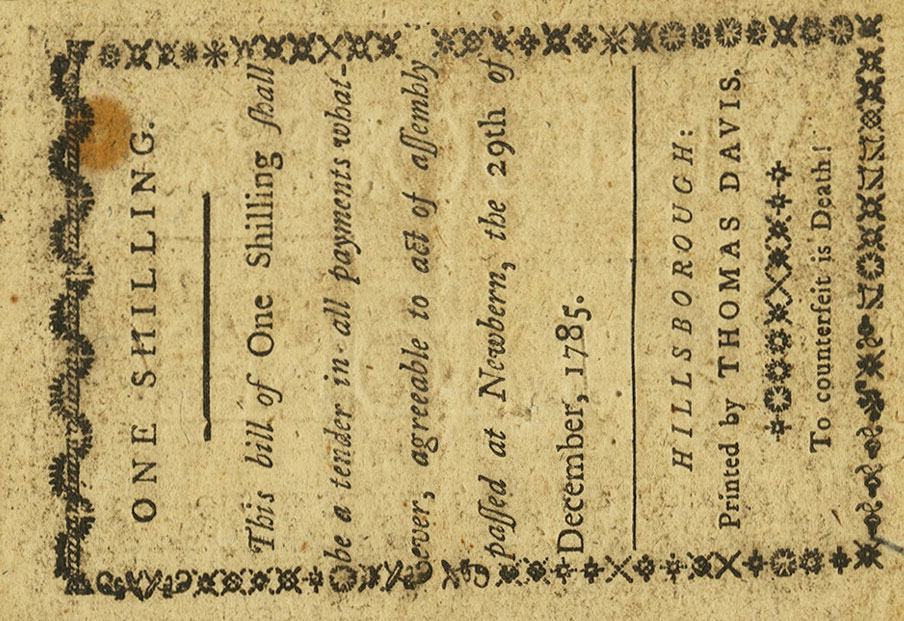 ONE SHILLING.
This bill of One Shilling ſhall
be a tender in all payments what-
ever, agreeable to act of aſſembly
paſſed at Newbern, the 29th of
December, 1785.
HILLSBOROUGH:
Printed by THOMAS DAVIS.
To counterfeit is Death!